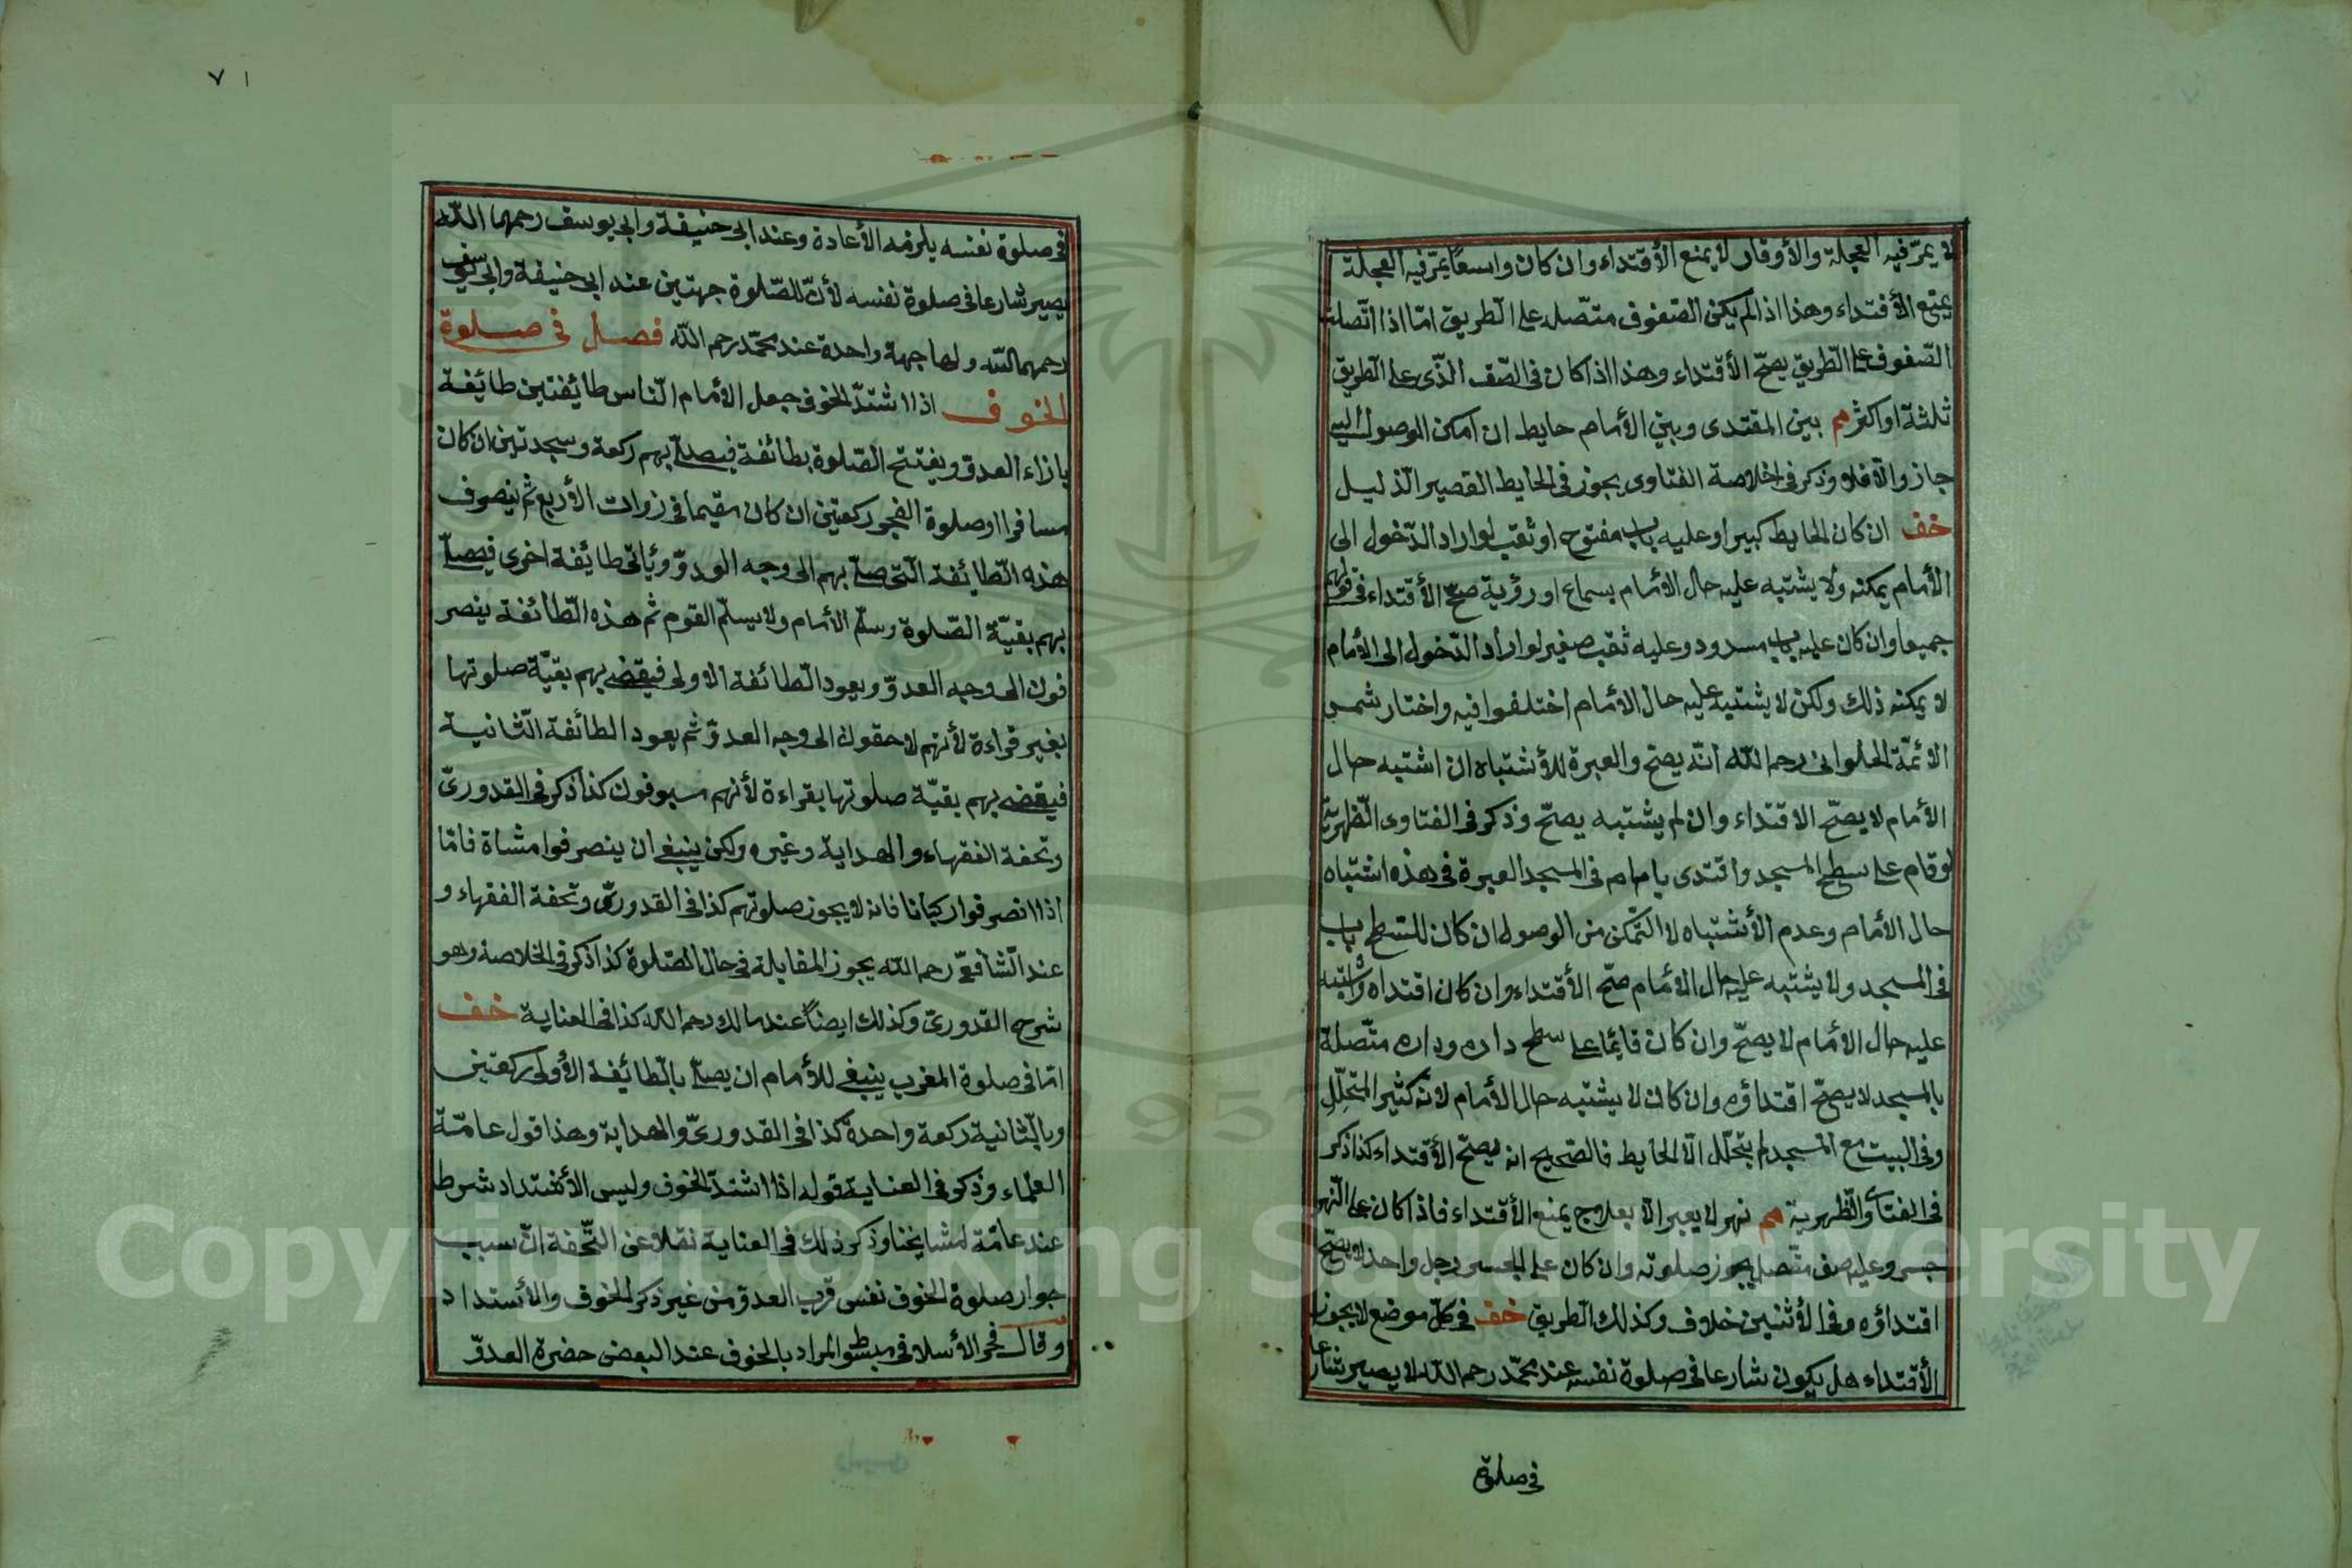 لا يمرّ فيه العجلة والأوقار لا يمنع الأقتداء وان كان واسعاً يمرّ فيه العجلة
يمنع الأقتداء وهذا اذا لم يكن الصّفوف متّصلة على الطّريق امّا اذا اتّصلت
الصّفوف على الطّريق يصحّ الأقتداء وهذا اذا كان فى الصّف الّذى على الطّريق
ثلثة او اكثر هم بين المقتدى وبين الأمام حايط ان امكن الوصول اليه
جاز والّا فلا وذكر فى خلاصة الفتاوى يجوز فى الحايط القصير الذليل
خف ان كان الحايط كبيرا وعليه باب مفتوح او ثقب لو اراد الدّخول الى
الأمام يمكنه ولا يشتبه عليه حال الأمام بسماع او رؤية صحّ الأقتداء فى قولهم
جميعا وان كان عليه باب مسدود وعليه ثقب صغير لو اراد الدّخول الى الأمام
لا يمكنه ذلك ولكن لا يشتبه عليه حال الأمام اختلفوا فيه واختار شمس
الأئمّة الحلوانى رحمه اللّه انّه يصحّ والعبرة للأشتباه ان اشتبه حال
الأمام لا يصحّ الاقتداء وان لم يشتبه يصحّ وذكر فى الفتاوى الظّهيريّة
لو قام على سطح المسجد واقتدى بامام فى المسجد العبرة فى هذه اشتباه
حال الأمام وعدم الأشتباه لا التّمكن من الوصول ان كان للسّطح باب
فى المسجد ولا يشتبه عليه حال الأمام صحّ الأقتداء وان كان اقتداه واشتبه
عليه حال الأمام لا يصحّ وان كان قايما على سطح داره وداره متّصلة
بالمسجد لا يصحّ اقتداؤه وان كان لا يشتبه حال الأمام لانّه كثير المتخلّل
وفى البيت مع المسجد لم يتخلّل الّا الحايط فالصّحيح انه يصحّ الأقتداء كذا ذكر
فى الفتاوى الظّهيرية هم نهر لا يعبر الّا بعلاج يمنع الأقتداء فاذا كان على النّهر
جسر وعليه صف متّصل يجوز صلوته وان كان على الجسر رجل واحد لا يصحّ
اقتداؤه وفى الأثنين خلاف وكذلك الطّريق خف فى كلّ موضع لا يجوز
الأقتداء هل يكون شارعا فى صلوة نفسه عند محمّد رحمه اللّه لا يصير شارعا
فى صلوة
٧١
فى صلوة نفسه يلزمه الأعادة وعند ابى حنيفة وابى يوسف رحمهما اللّه
يصير شارعا فى صلوة نفسه لأنّ للصّلوة جهتين عند ابى حنيفة وابى يوسف
رحمهما اللّه ولها جهة واحدة عند محمّد رحم اللّه فصل فى صلوة
الخوف اذا اشتدّ الخوف جعل الأمام النّاس طايفتين طايفة
بازاء العدوّ ويفتتح الصّلوة بطائفة فيصلّى بهم ركعة وسجدتين ان كان
مسافرا او صلوة الفجر وركعتين ان كان مقيما فى زوات الأربع ثم ينصرف
هذه الطّايفة الّتى صلّى بهم الى وجه الودوّ ويأتى طائفة اخرى فيصلّى
بهم بقيّة الصّلوة وسلّم الأمام ولا يسلّم القوم ثم هذه الطّائفة ينصر
فون الى وجه العدوّ ويعود الطّائفة الاولى فيقضى بهم بقيّة صلوتها
بغير قراءة لأنهم لاحقون الى وجه العدوّ ثم يعود الطائفة الثّانية
فيقضى بهم بقيّة صلوتها بقراءة لأنهم مسبوقون كذا ذكر فى القدورىّ
وتحفة الفقهاء والهداية وغيره ولكن ينبغى ان ينصرفوا مشاة فامّا
اذا انصرفوا ركبانا فانه لا يجوز صلوتهم كذا فى القدورىّ وتحفة الفقهاء و
عند الشّافعىّ رحم اللّه يجوز المقابلة فى حال الصّلوة كذا ذكر فى الخلاصة وهو
شرح القدورىّ وكذلك ايضاً عند مالك رحم اللّه كذا فى العناية خف
امّا فى صلوة المغرب ينبغى للأمام ان يصلّى بالطّايفة الأولى ركعتين
وبالثّانية ركعة واحدة كذا فى القدورىّ والهداية وهذا قول عامّة
العلماء وذكر فى العناية قوله اذا اشتدّ الخوف وليس الأشتداد شرطا
عند عامّة مشايخنا وذكر ذلك فى العناية نقلا عن التّحفة انّ سبب
جواز صلوة الخوف نفس قرب العدوّ من غير ذكر الخوف والأستداد
وقال فخر الأسلام فى مبسوطه المراد بالخوف عند البعض حضرة العدوّ
Copyright © King Saud University